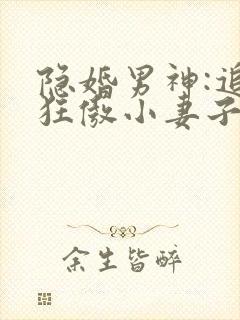 隐婚男神:追
狂傲小妻子
余生皆醉